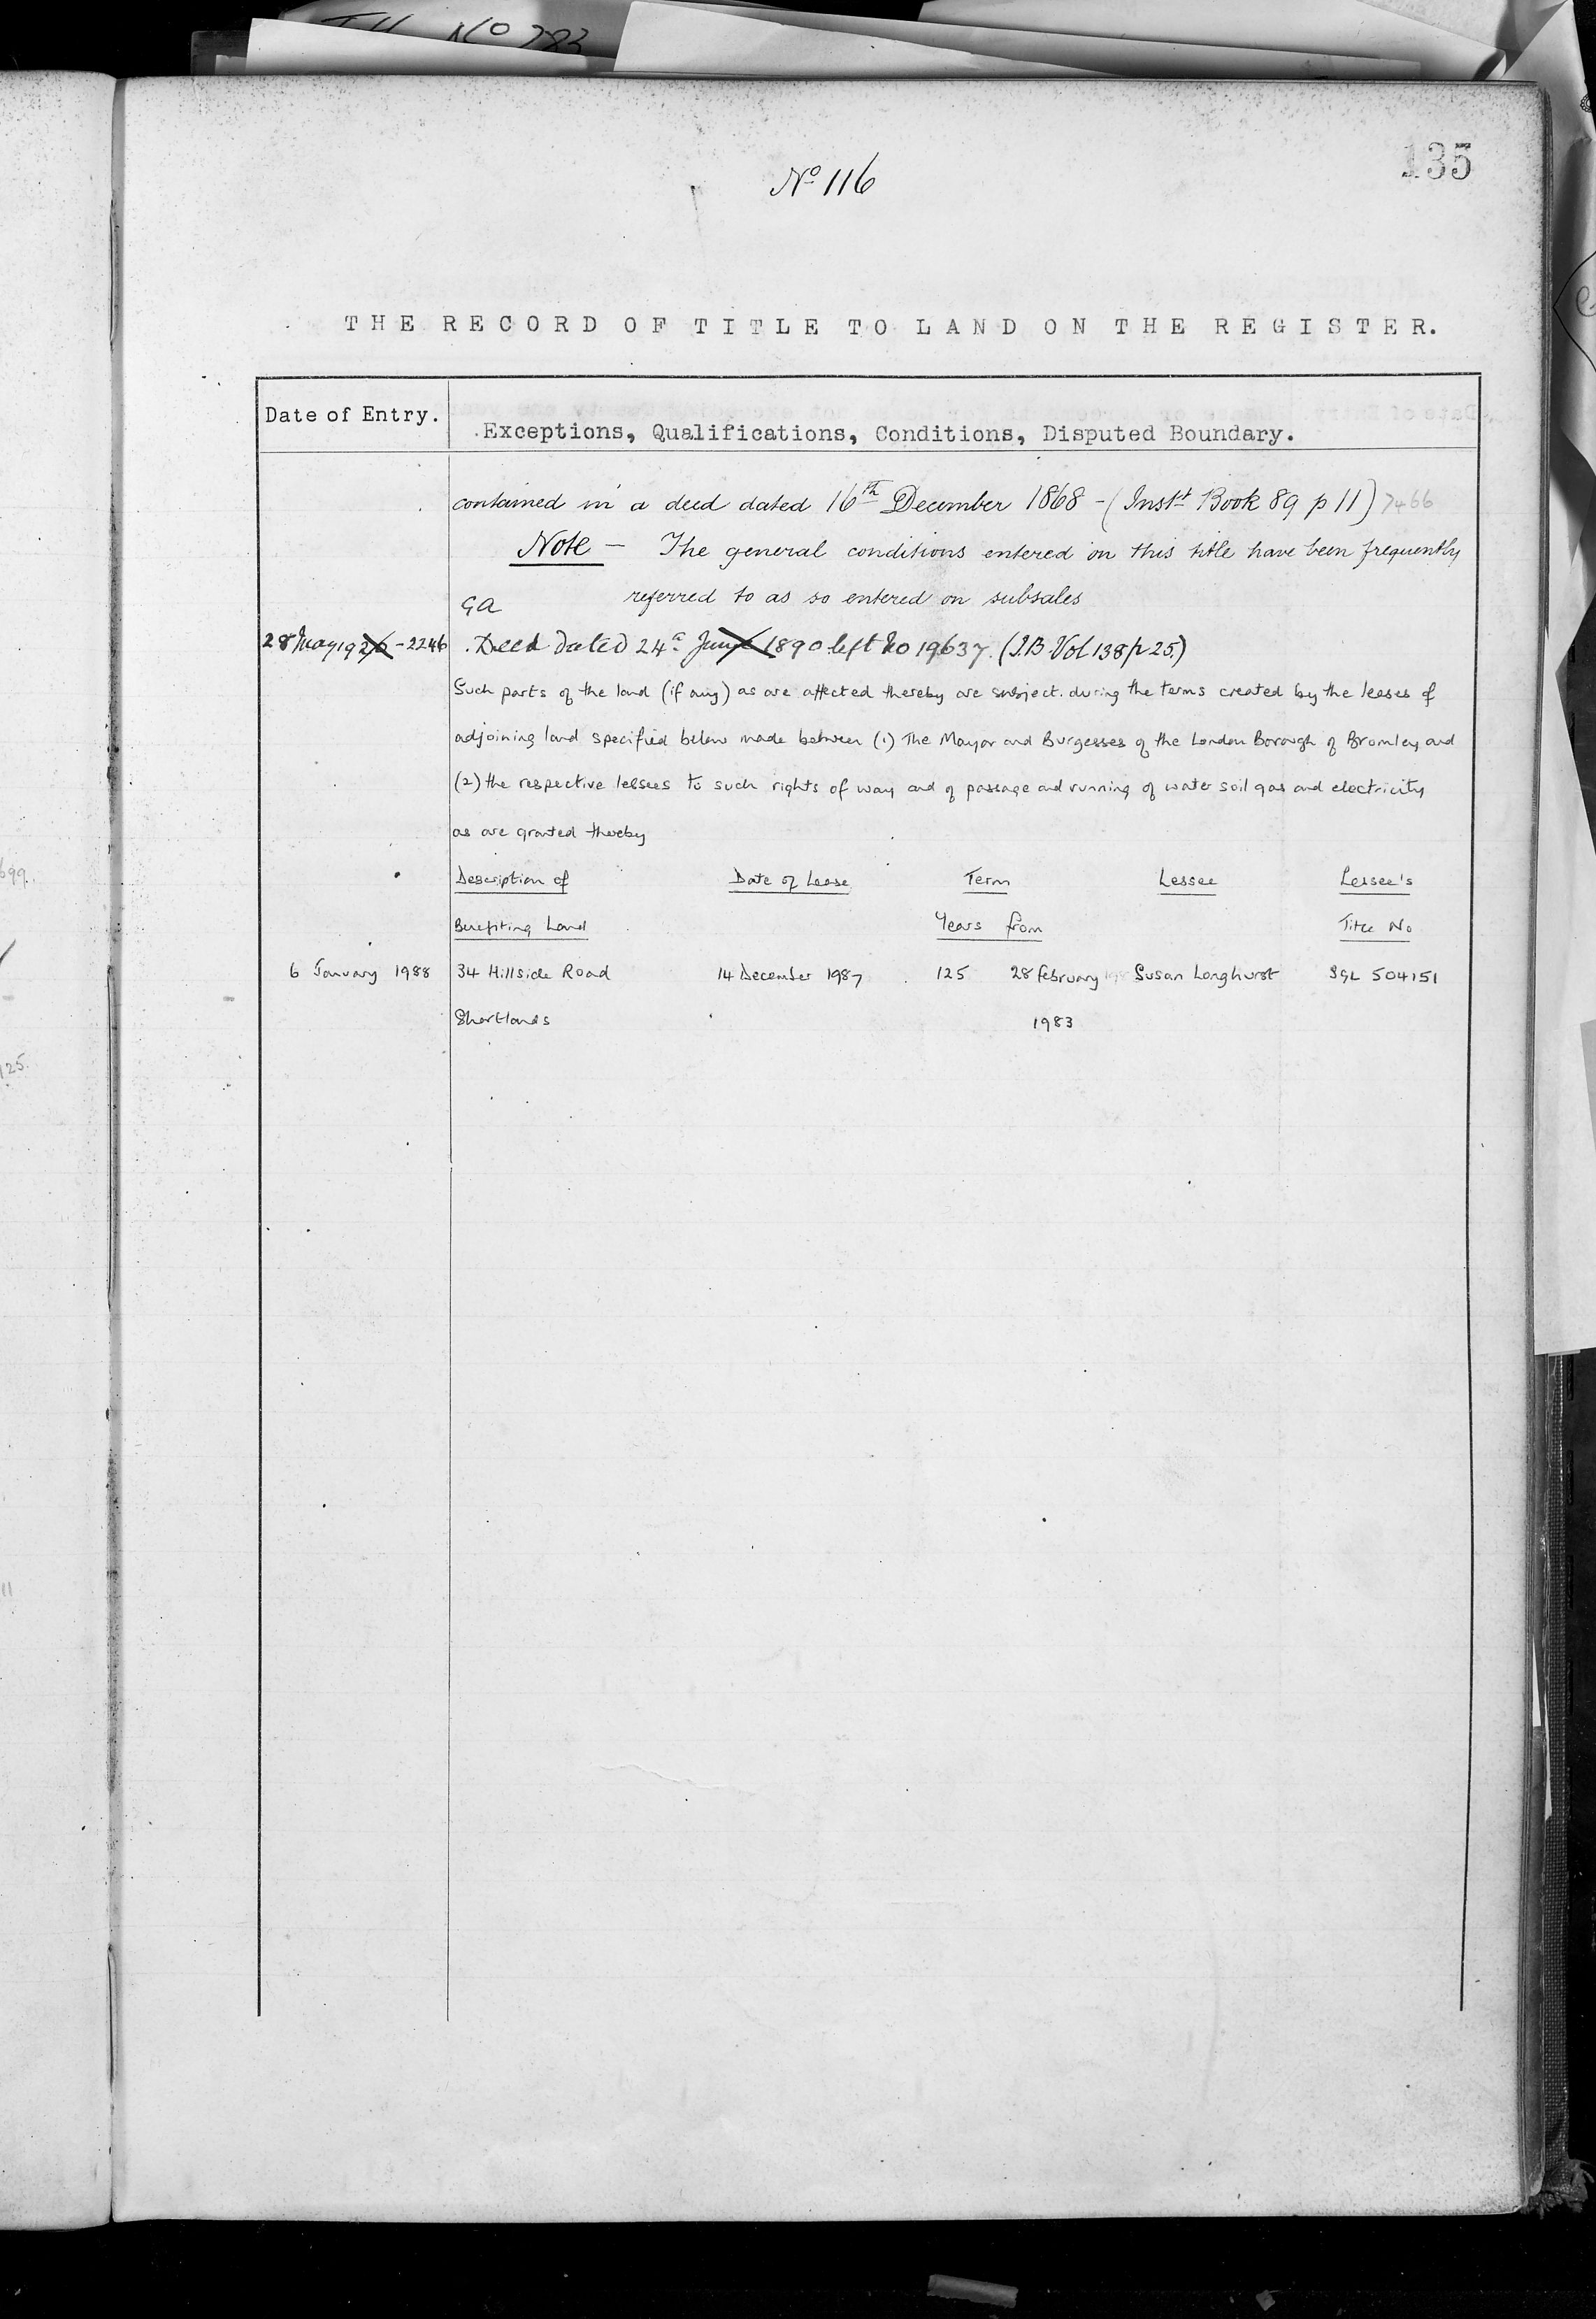 No 283
135
No 116
THE RECORD OF TITLE TO LAND ON THE REGISTER.
Date of Entry.
Exceptions, Qualifications, Conditions, Disputed Boundary.
contained in a deed dated 16th December 1868 - (Inst Book 89 p 11) 7466
Note - The general conditions entered on this title have been frequently
referred to as so entered on subsales
GA
28 May 1926 - 2246 Deed dated 24 June 1890 left No 19637. (I.B. Vol 138 p 25.)
Such parts of the land (if any) as are affected thereby are subject during the terms created by the leases of
adjoining land specified below made between (1) The Mayor and Burgesses of the London Borough of Bromley and
(2) the respective lessees to such rights of way and of passage and running of water soil gas and electricity
as are granted thereby
Description of Date of Lease Term Lessee Lessee's
Benefiting Land Years from Title No
6 January 1988 34 Hillside Road 14 December 1987 125 28 February Susan Longhurst SGL 504151
Shortlands 1983
699.
125.
11